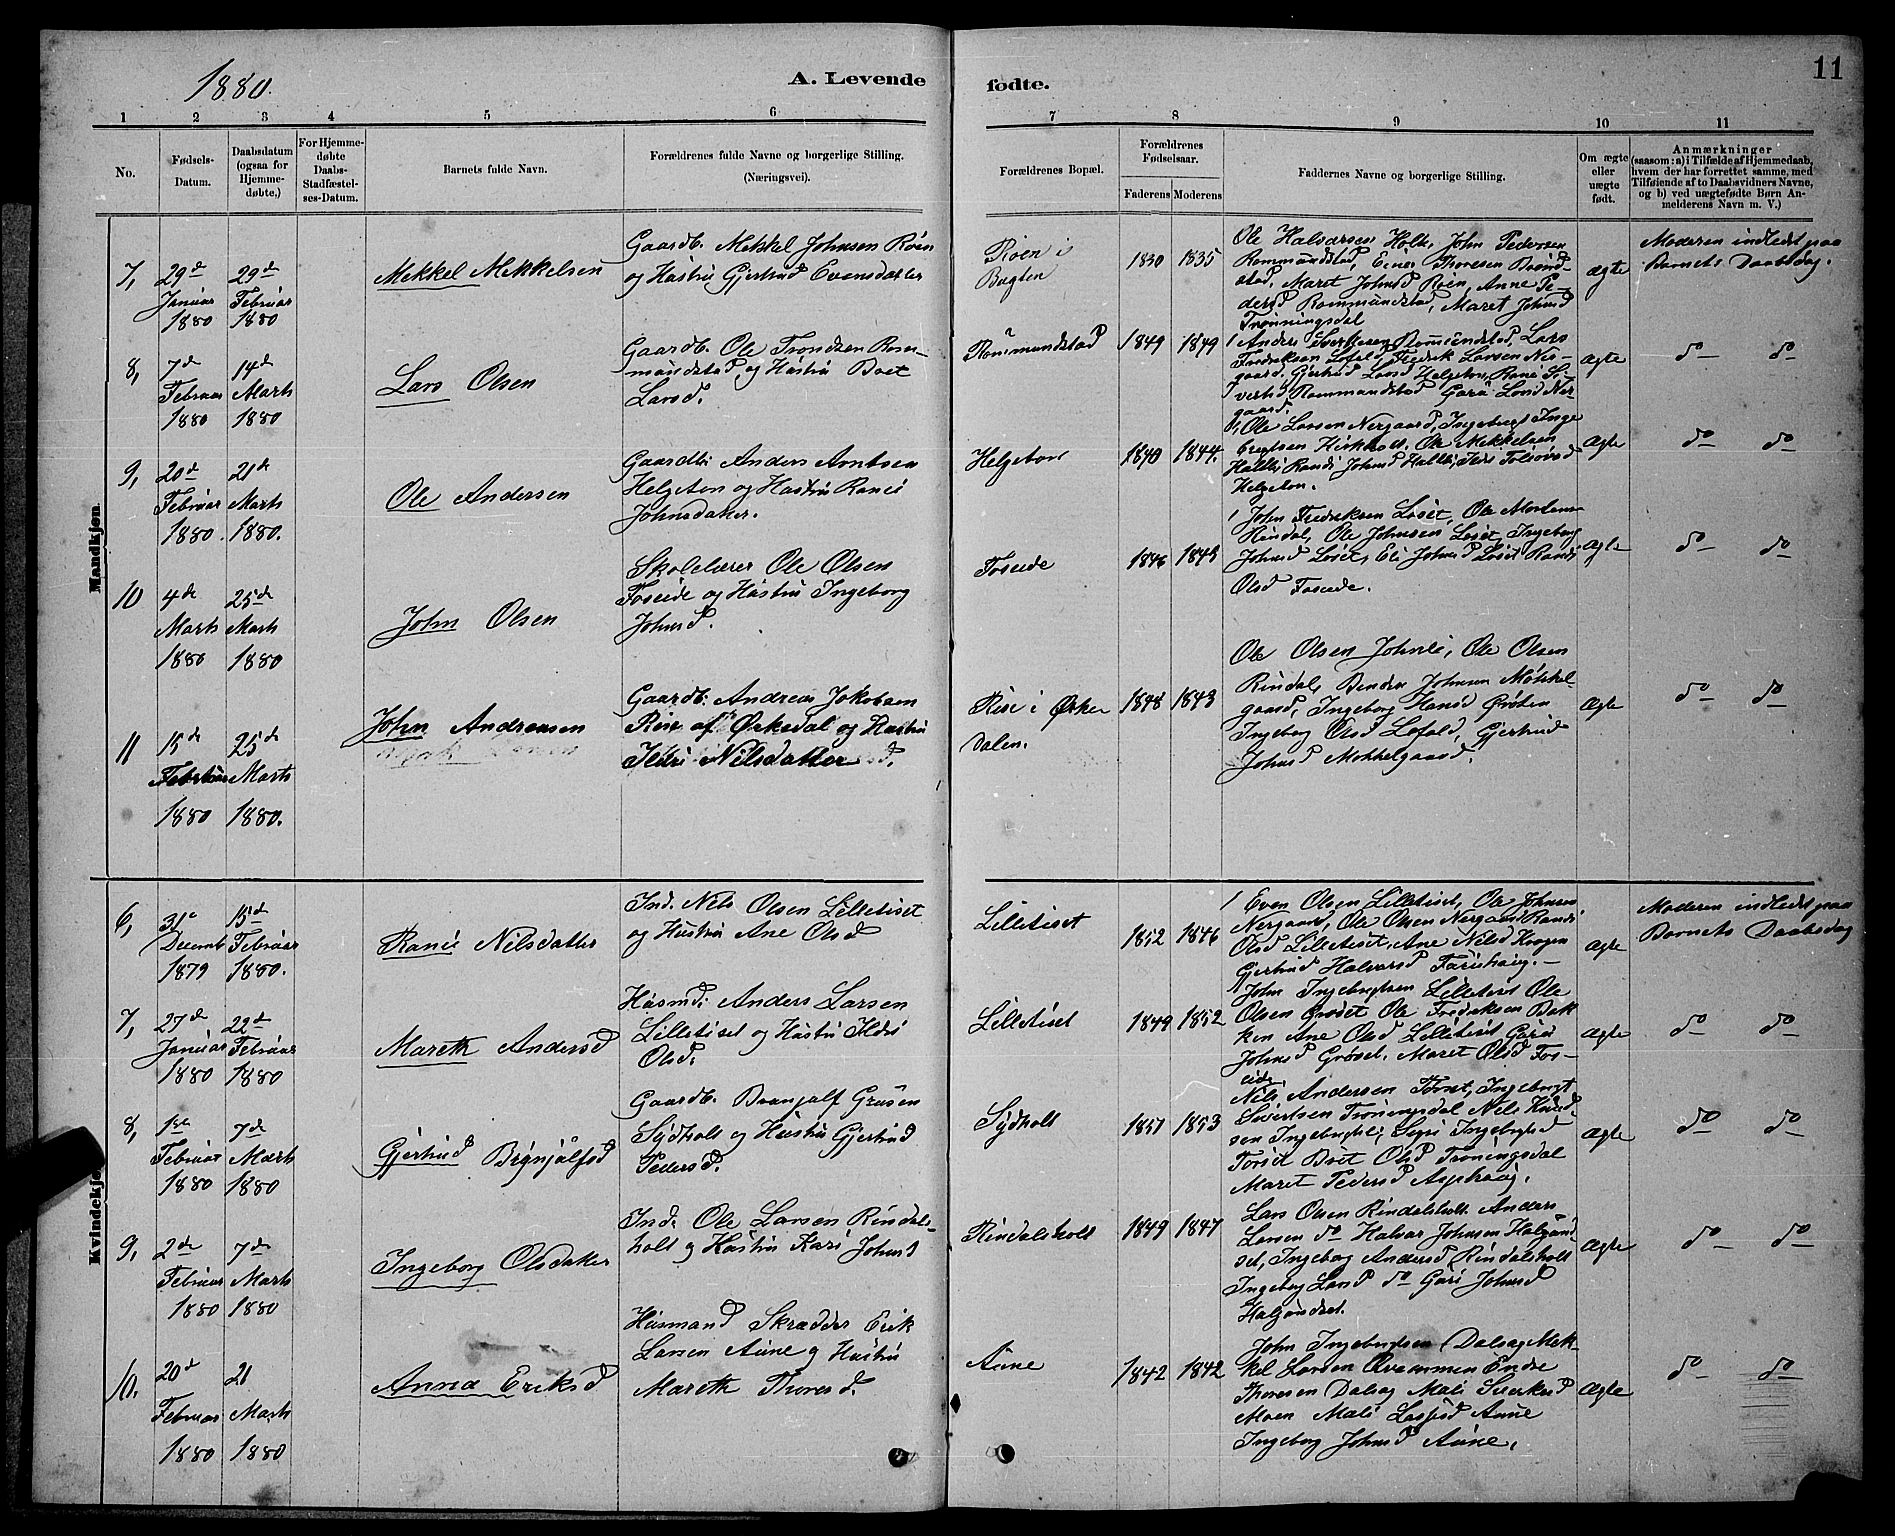 1880.
A. Levende
fødte.
11
1 2 3 4 5 6 7 8 9 10 11
No.
Fødsels-
Datum.
Daabsdatum
(ogsaa for
Hjemme-
døbte,)
For Hjemme-
døbte
Daabs-
Stadfæstel-
ses-Datum.
Barnets fulde Navn.
Forældrenes fulde Navne og borgerlige Stilling.
(Næringsvei).
Forældrenes Bopæl.
Forældrenes
Fødselsaar.
Faderens Moderens
Faddernes Navne og borgerlige Stilling.
Om ægte
eller
uægte
født.
Anmærkninger
(saasom: a) i Tilfælde af Hjemmedaab,
hvem der har forrettet samme, med
Tilføiende af to Daabsvidners Navne,
og b) ved uægtefødte Børn An-
melderens Navn m. V.)
Mandkjøn.
7, 29de Januar 1880
29de Februar 1880
Mekkel Mekkelsen
Gaardb. Mekkel Johnsen Roen
og Hustru Gjertrud Evensdatter
Roen i
1830 1835
Ole Halvorsen Holte, John Pedersen
Rommundstad, Enor Thoresen Brønd-
stad, Maret Johnsd Roen, Anne Pe-
dersd Rommundstad, Maret Johnsd
Trønningsdal
ægte
Moderen indledet paa
Barnets Daabsdag.
8, 7de Februar 1880
14de Marts 1880
Lars Olsen
Gaardb. Ole Trondsen Rom-
mundstad, og Hustru Beret
Larsd.
Rommundstad
1849 1849
Anders Sverkesen Rommundstad, Lars
Fredriksen Løfald, Fredrik Larsen Nør-
gaard. Gjertrud Larsd Helgeton, Rani Si-
vertsd Rommundstad Guru Larsd Nør-
gaard.
ægte
do do
9, 20de Februar 1880.
21de Marts 1880.
Ole Andersen
Gaardb. Anders Arntsen
Helgeton og Hustru Rani
Johnsdatter.
Helgeton
1840 1844.
Ole Larsen Nergaard, Ingebrigt Inge-
brigtsen Kirkholt, Ole Mekkelsen
Halle, Randi Johnsd Halle,
Helgeton.
ægte
do do
10 4de Marts 1880
25de Marts 1880
John Olsen
Skolelærer Ole Olsen
Foseide og Hustru Ingeborg
Johnsd.
Foseide
1846 1843
John Fredriksen Løset, Ole Mortens
Rindal, Ole Johnsen Løset, Ingeborg
Johnsd Løset, Eli Johnsd Løset Randi
Olsd Foseide.
ægte
do do
11 15de Februar 1880
25de Marts 1880.
John Andreasen
Gaardb. Andreas Jakobsen
Rise af Ørkedal og Hustru
Ildri Nilsdatter
Rise i Ørke
Dalen.
1848 1843
Ole Olsen Johnli, Ole Olsen
Rindal, Johnsen Møkkel-
gaard, Ingeborg Hansd
Ingebog Olsd Løfald, Gjertrud
Johnsd Møkkelgaard.
ægte
do do
Kvindekjøn
6, 31e Decemb 1879
15de Februar 1880.
Rani Nilsdatter
Ind. Nils Olsen Lilletiset
og Hustru Ane Olsd
Lilletiset
1852 1846
Even Olsen Lilletiset, Ole Johnsen
Nergaard, Ole Olsen Nergaard Randi
Olsd Lilletiset, Ane Nilsd Krogen
Gjertrud Halvorsd
ægte
Moderen indledet paa
Barnets Daabsdag
7, 27de Januar 1880
22de Februar 1880
Mareth Andersd
Husmd. Anders Larsen
Lilletiset og Hustru Ildri
Olsd.
Lilletiset
1849 1852
John Ingebrigtsen Lilletiset Ole
Olsen Grøset Ole Fredriksen Bak-
ken Ane Olsd Lilletiset Guru
Johnsd Grøset, Maret Olsd Fos-
eide.
ægte
do do
8, 1ste Februar 1880
7de Marts 1880
Gjertrud Brynjulfsd
Gaardb. Brønjulf
Sydholt og Hustru Gjertrud
Pedersd.
Sydholt
1857 1853
Nils Andersen Tørset, Ingebrigt
Sivertsen Trøningsdal Nils Knud-
sen Ingebrigtsli, Segri Ingebrigtsd
Tørset Brit Olsd Trøningsdal
Maret Pedersd Asphaug.
ægte
do do
9, 2de Februar 1880
7de Marts 1880
Ingeborg Olsdatter
Ind. Ole Larsen Rindals-
holt og Hustru Kari Johnsd
Rindalsholt
1849 1847
Lars Olsen Rindalsholt. Anders
Larsen do Halvor Johnsen Halgund-
set, Ingebog Andersd Rindalsholt
Ingebog Larsd do Guri Johnsd
Halgundset.
ægte
do do
10. 20de Februar 1880
21 Marts 1880
Anna Eriksd
Husmand Skrædder Erik
Larsen Aune og Hustru
Mareth Thoresd.
Aune
1842 1842
John Ingebrigtsen Dalsag Mek-
kel Larsen Kvammen Endre
Thoresen Dalsag Mali Sverkesd
Moen Mali Larsd Aune
Ingebog Johnsd Aune.
ægte
do do